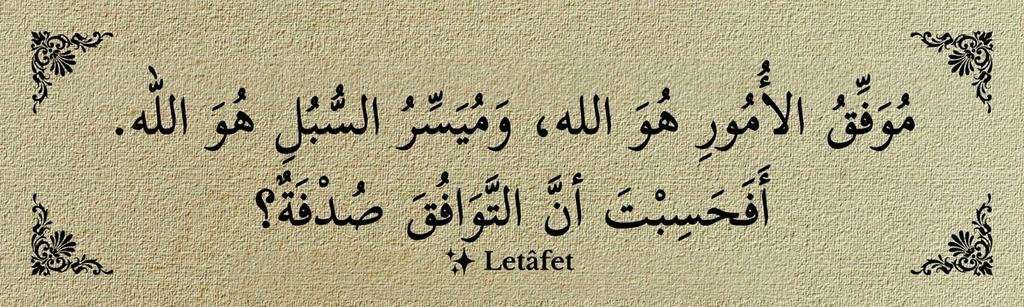 مُوَفِّقُ الأُمُورِ هُوَ الله، وَمُيَسِّرُ السُّبُلِ هُوَ اللّٰه.
أَفَحَسِبْتَ أنَّ التَّوَافُقَ صُدْفَةٌ؟
Letâfet